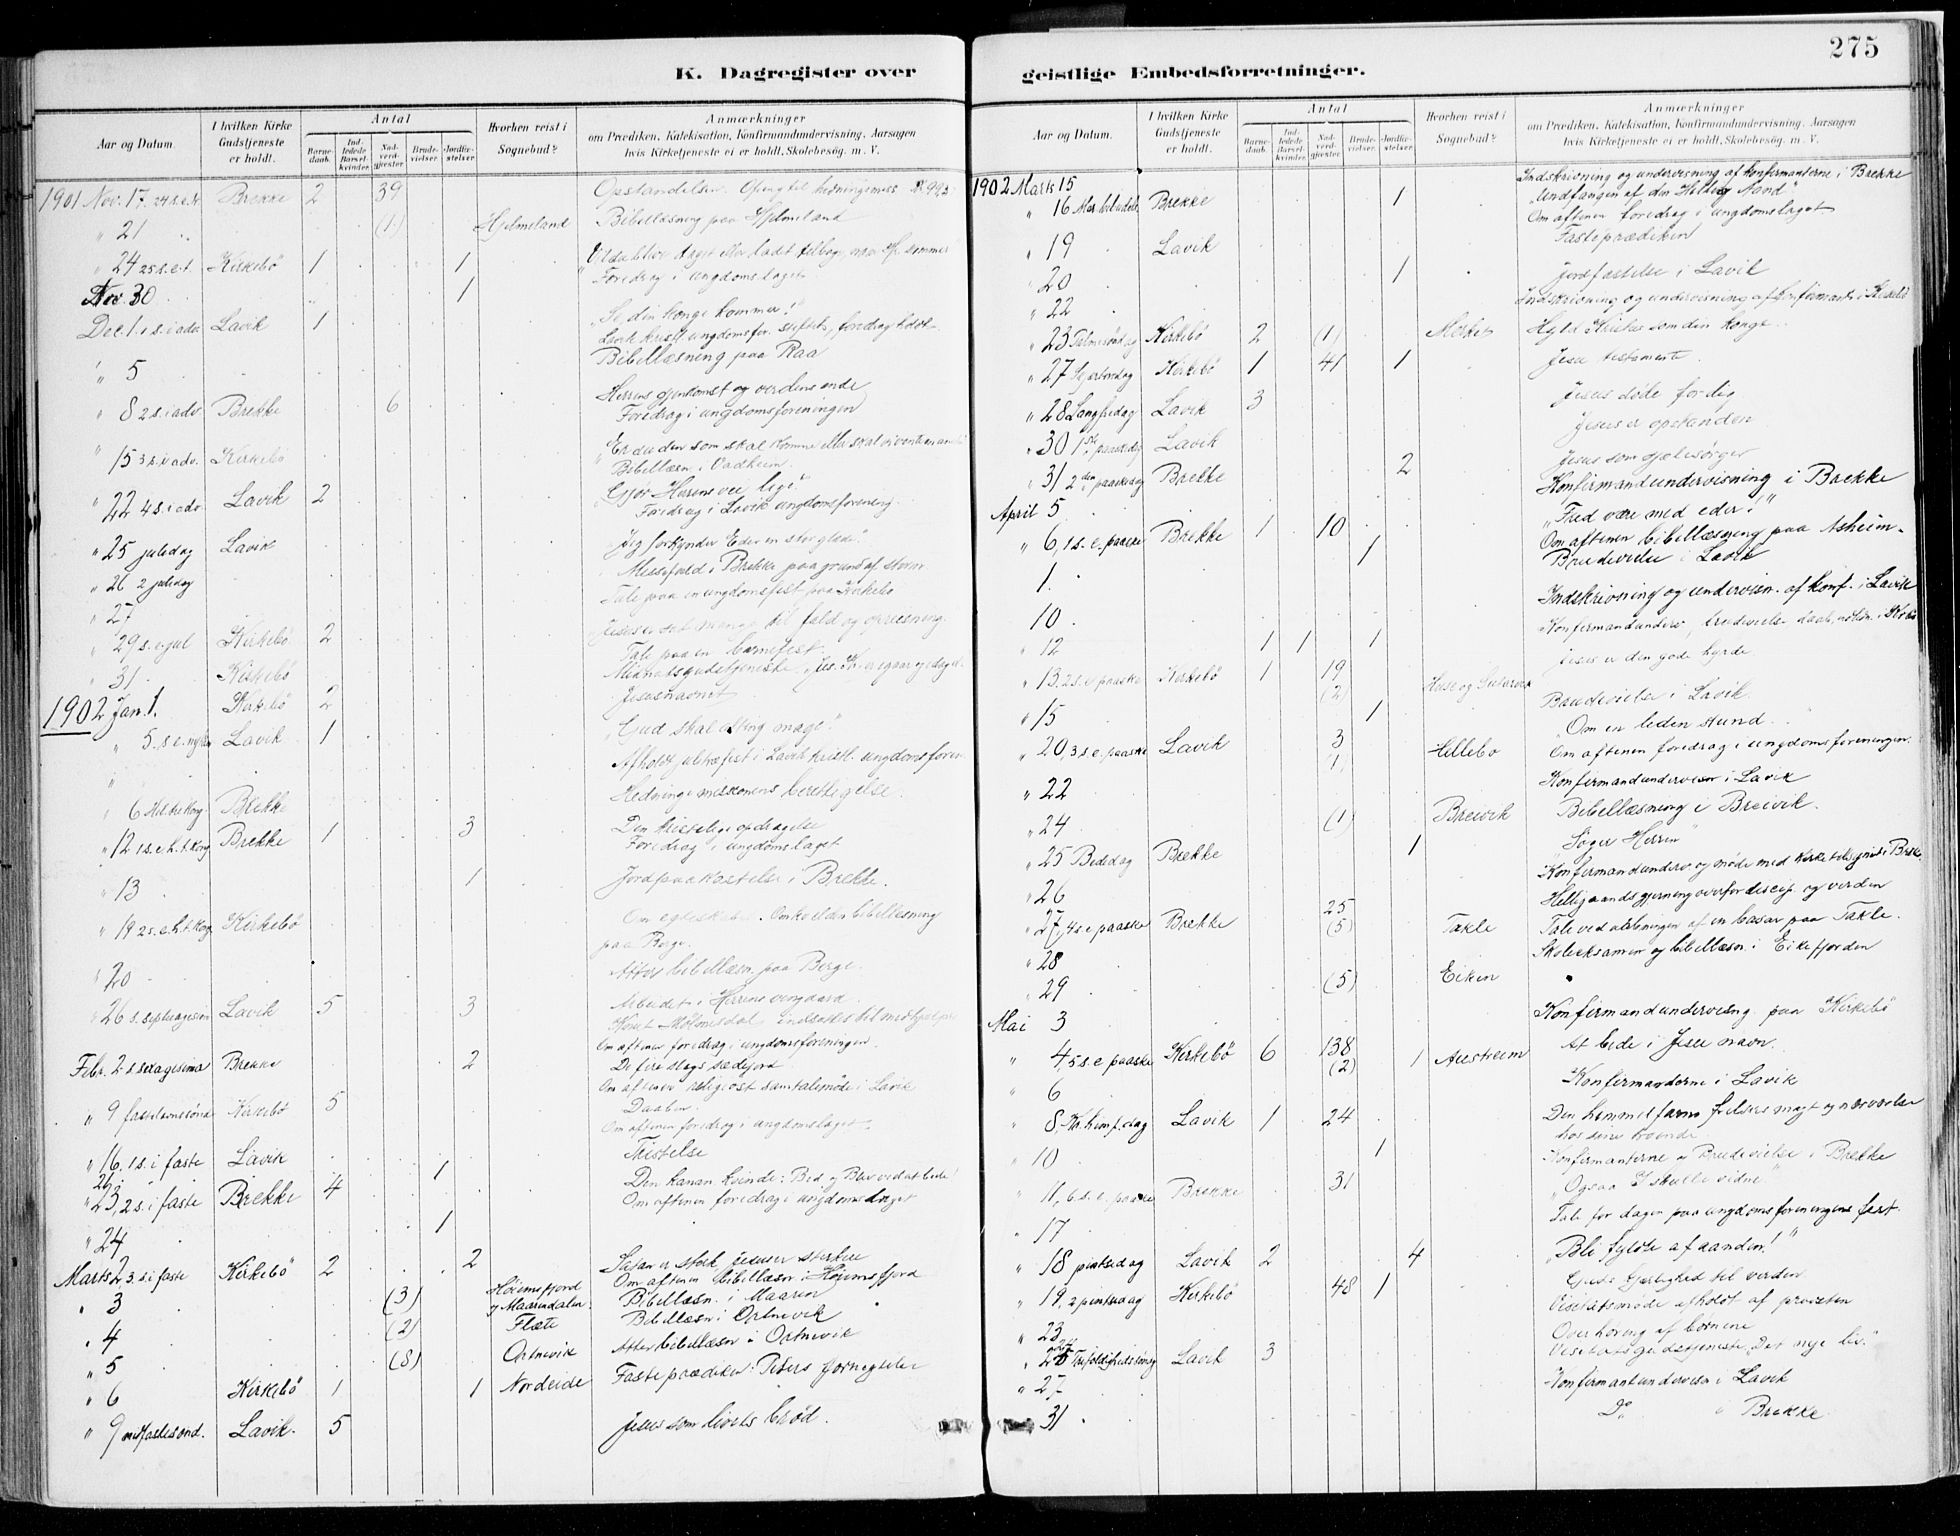 275
K. Dagregister over
geistlige Embedsforretninger.
Aar og Datum.
I hvilken Kirke Gudstjeneste er holdt.
Antal
Barnedaab.
Indledede Barselkvinder.
Nadverdgjester.
Brudevielser.
Jordfæstelser.
Hvorhen reist i Sognebud?
Anmærkninger
om Prædiken, Katekisation, Konfirmandundervisning, Aarsagen hvis Kirketjeneste ei er holdt, Skolebesøg. m. V.
1901 Nov. 17. 24 s.e.tr Brekke 2 39 Opstandelsen. Ofring til hedningemiss
" 21 (1) Hjelmeland Bibellæsning paa Hjelmeland
" 24 25 s.e.t. Kirkebø 1 1
Foredrag i ungdomslaget
Nov. 30 1
Dec. 1 1 s. i adv. Lavik 1 "Se din konge kommer!"
Lavik kristl. ungdomsfor. stiftet, foredrag
" 5 Bibellæsning paa Raa
" 8 2 s. i adv. Brekke 6 Herrens gjenkomst og verdens ende
Foredrag i ungdomsforeningen
" 15 3 s. i adv. Kirkebø "Er du den som skal komme eller skal vi vente en anden
Bibellæsn. i Vadheim.
" 22 4 s. i adv. Lavik 2 "Gjør Herrens vei lige!"
Foredrag i Lavik ungdomsforening.
" 25 juledag Lavik "Jeg forkynder Eder en stor glæde."
" 26 2 juledag Messefald i Brekke paa grund af storm
" 27 Tale paa en ungdomsfest paa Kirkebø
" 29 s.e. jul Kirkebø 2 Jesus er sat mange til fald og opreisning.
Tale paa en barnefest.
" 31 Kirkebø Midnatsgudstjeneste.
1902 Jan. 1. Kirkebø 2 Jesusnavnet
" 5. s.e. nytaar Lavik 1 "Gud skal alting mage."
Afholdt juletræfest i Lavik kristl. ungdomsforen.
" 6 Hel. tre Kong Brekke Hedningemissionens berettigelse.
" 12 1 s.e.h.t. kong Brekke 1 3 Den kristelige opdragelse
Foredrag i ungdomslaget
" 13 1 Jordpaakastelse i Brekke.
" 19 2 s.e.h.t. kong. Kirkebø Om egteskabet. Om kvelden bibellæsning
paa Berge.
" 20 Atter bibellæsn. paa Berge.
" 26 s. septuagesima Lavik 5 3 Arbeidet i Herrens vingaard.
Om aftenen foredrag i ungdomsforeningen.
Febr. 2 s. sexagesima Brekke 2 De fire slags sædejord
Om aftenen religiøst samtalemøde i Lavik
" 9 fastelavnssønd. Kirkebø 5 Daaben
Om aftenen foredrag i ungdomslaget.
" 16, 1 s. i faste Lavik Fristelse
" 23, 2 s. i faste Brekke 4 1 Den kanan. kvinde: Bed og Bliv ved at bede!
Om aftenen foredrag i ungdomslaget
" 24 1
Marts 2 3. s. i faste Kirkebø 2 2 Satan er sterk, Jesus er sterkere
Om aftenen bibellæsn. i Høiemsfjord
" 3 (3) Høiemsfjord og Maarendalen Bibellæsn. i Maaren
" 4 (2) Flæte Bibellæsn i Ortnevik
" 5 (8) Ortnevik Atter bibellæsn i Ortnevik
" 6 Kirkebø 1 1 Nordeide Fasteprædiken: Peters fornegtelse
" 9 midfastesønd. Lavik. 5 Jesus som livets brød.
Aar og Datum.
I hvilken Kirke Gudstjeneste er holdt.
Antal
Barnedaab.
Indledede Barselkvinder.
Nadverdgjester.
Brudevielser.
Jordfæstelser.
Hvorhen reist i Sognebud?
Anmærkninger
om Prædiken, Katekisation, Konfirmandundervisning, Aarsagen hvis Kirketjeneste ei er holdt, Skolebesøg. m. V.
1902 Marts 15 Indskrivning og undervisning af konfirmanterne i Brekke
" 16 Mar. bebudelse Brekke 1 "Undfangen af den Hellig Aand"
Om aftenen foredrag i ungdomslaget
" 19 Lavik Fasteprædiken
" 20 1 Jordfæstelse i Lavik
" 22 Indskrivning og undervisning af konfirmant. i Kirkebø
" 23 Palmesøndag Kirkebø 2 (1) Hyld Kristus som din konge.
" 27 Skjærtorsdag Kirkebø 1 41 1 Jesu testamente.
" 28 Langfredag Lavik 3 Jesus døde for dig
" 30 1ste paaskedag Lavik Jesus er opstanden
" 31 2den paaskedag Brekke 2 Jesus som sjælesørger
April 5 Konfirmandundervisning i Brekke
" 6, 1 s. e. paaske Brekke 1 10 "Fred være med eder!"
Om aftenen bibellæsning paa Asheim.
1. 1 Brudevielse i Lavik
10 Indskrivning og undervisn. af konf. i Lavik
" 12 1 1 1 Konfirmandunderv., brudevielse, daab,
" 13. 2 s. e. paaske Kirkebø 1 19 (2) Jesus er den gode hyrde
" 15 1 Brudevielse i Lavik.
" 20, 3 s. e. paaske Lavik 3 (1) Hellebø "Om en liden stund..."
Om aftenen foredrag i ungdomsforeningen.
" 22 Konfirmandundervisn i Lavik
" 24 (1) Breivik Bibellæsning i Breivik.
" 25 Bededag Brekke 1 "Søger Herren"
" 26 Konfirmandunderv. og møde med kirketilsynet i Brekke
" 27, 4 s. e. paaske Brekke 25 (5) Takle Helligaandsgjerning overfor discip. og verden
" 28 Tale ved aabningen af en basar paa Takle.
" 29 (5) Eiken Skoleeksamen og bibellæsn. i Eikefjorden
Mai 3 Konfirmandundervisng. paa Kirkebø
" 4, 5 s. e paaske Kirkebø 6 138 (2) 1 Austreim At bede i Jesu navn.
" 6 Konfirmanderne i Lavik
" 8, Kr. himf. dag Lavik 1 24 Den himmelfarne frelsers magt og nærværelse
hos sine troende.
" 10 1 Konfirmanterne og Brudevielse i Brekke
" 11, 6. s. e. paaske Brekke 31 "Ogsaa I skulle vidne"
" 17 Tale for dagen paa ungdomsforeningens fest.
" 18 pintsedag Lavik 2 4 "Bli fyldte af aanden!"
" 19, 2 pintsedag Kirkebø 48 1 Guds kjærlighed til verden
Visitatsmøde afholdt af provsten
" 23 Overhøring af børnene
" 25 Trefoldighedssøndag Lavik 3 Visitatsgudstjeneste, "Det nye liv."
" 27 Konfirmantundervisn i Lavik
" 31 Do " Brekke